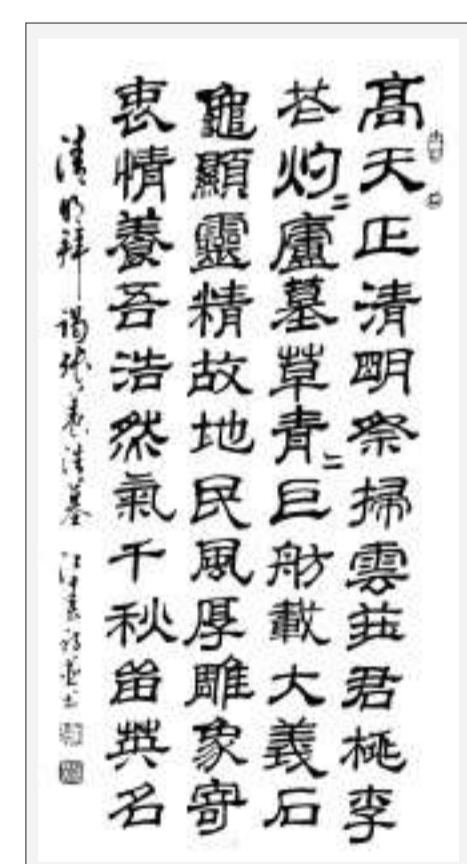 高天正清明祭掃雲莊君桃李
花灼〻廬墓草青〻巨舫載大義石
龜顯靈精故地民風厚雕象寄
衷情養吾浩然氣千秋留英名
清明拜謁張養浩墓